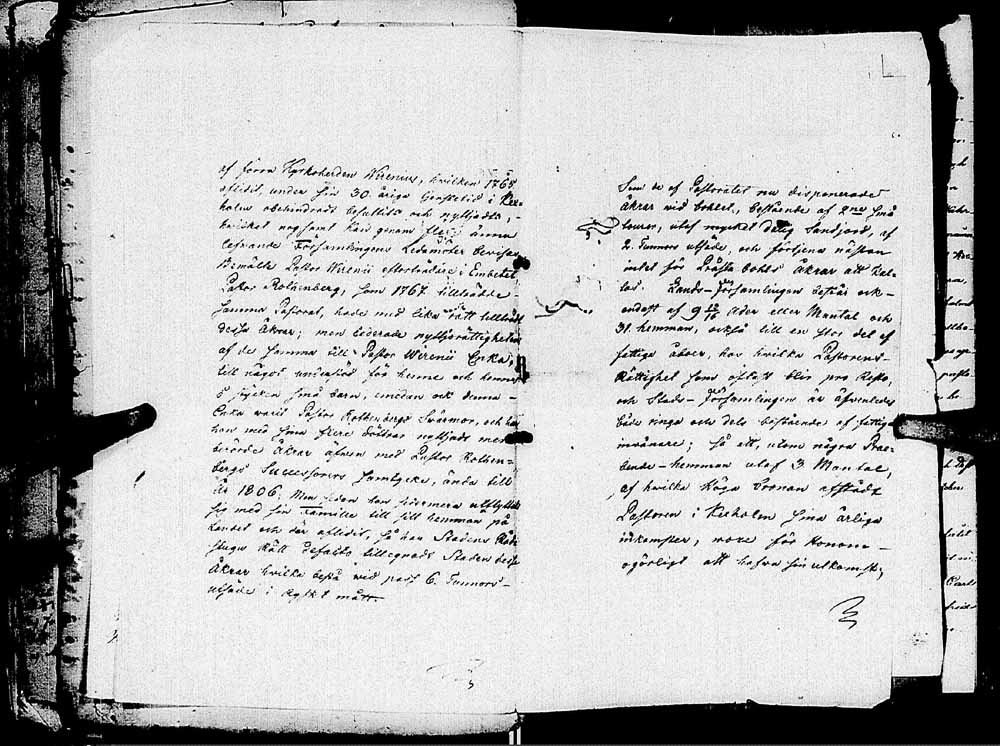 af förra Kyrkoherden Wirenius, hvilken 1765
aflidit, under sin 30 åriga tjenstetid i Kex-
holm obehindrat besuttits och nyttjadts, -
hvilket nogsamt kan genom flere ännu
lefvande Församlingens Ledamöter bevisas
Bemälte Pastor Wirenii efterträdare i Embetet,
Pastor Rothenberg, som 1767 tillträdde
samma Pastorat, hade med lika rätt tillträdt
dessa Åkrar; men lederade nyttjorättigheten
af de samma till Pastor Wirenii Enka,
till något understöd för henne och hennes
6 stycken små barn, emedan ock denna
Enka warit Pastor Rothenbergs Svärmor, och har
hon med sina flere döttrar nyttjadt mer
berörde Åkrar äfven med Pastor Rothen-
bergs Successorers samtycke, ända till
år 1806. Men sedan hon sidermera utflyttat
sig med sin Familie till sitt hemman på
Landet och där aflidit, så har Stadens Råd-
stugu Rätt defacto tillegnadt Staden desse
Åkrar hvilka bestå wid pass 6. Tunnors
utsäde i Ryskt mått.
Som de af Pastoratet nu disponerade
Åkrar wid bohlet, bestående af 2ne små
, utaf mycket dålig Sandjord, af
2. Tunnors utsäde, och förtjena nästan
intet för Prästebohls Åkrar att kal-
las. Lands-Församlingen består ock-
endast af 9 Ader eller Mantal och
31. hemman, också till en stor del af
fattige åboer, hos hvilka Pastorens-
Rättighet som oftast blir pro Resto,
och Stads-Församlingen är äfvenledes
både ringa och dels bestående af fattige
invånare; så att, utom några Prae-
bende-hemman utaf 3. Mantal,
af hvilka Höga Cronan afstådt
Pastoren i Kexholm sina årliga
inkomster, wore för honom -
ogörligt att hafva sin utkomst;